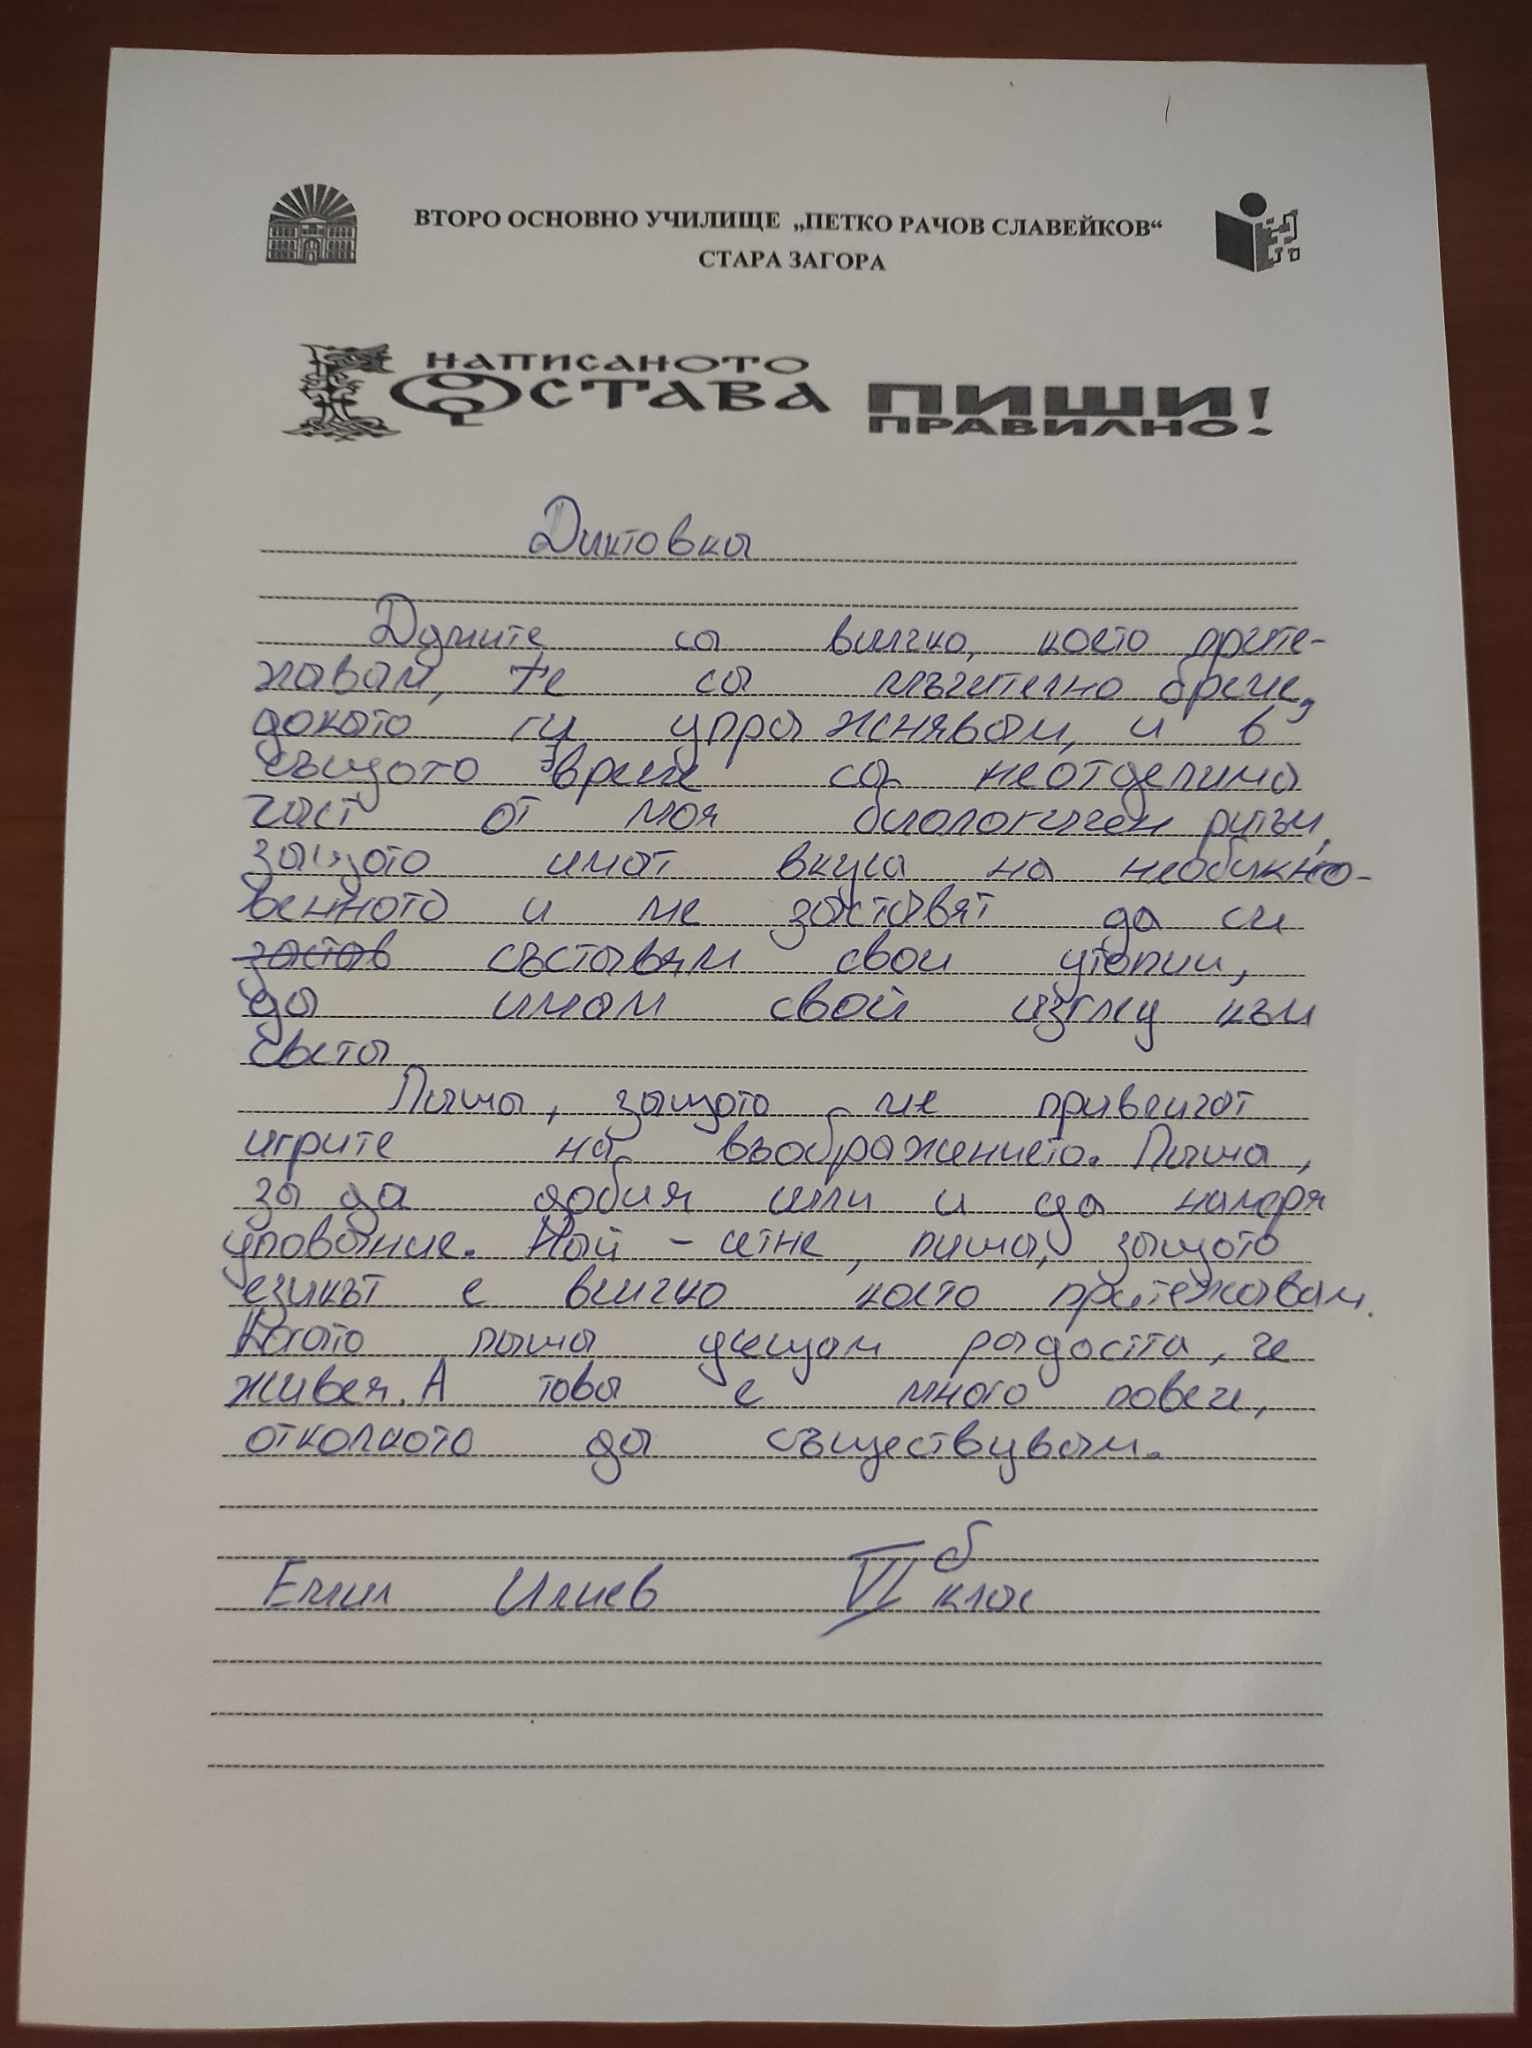 ВТОРО ОСНОВНО УЧИЛИЩЕ „ПЕТКО РАЧОВ СЛАВЕЙКОВ“
СТАРА ЗАГОРА
НАПИСАНОТО
ОСТАВА
ПИШИ
ПРАВИЛНО!
Диктовка
Думите са всичко, което прите-
жавам, те са мъчително бреме,
докато ги упражнявам, и в
същото време са неотделима
част от моя биологичен ритъм,
защото имат вкуса на необикно-
венното и ме заставят да си
застав съставям свои утопии,
да имам свой изглед към
света
Пиша, защото ме привличат
игрите на въображението. Пиша,
за да добия сили и да намеря
упование. Най - сетне, пиша, защото
езикът е всичко което притежавам.
Когато пиша усещам радостта, че
живея. А това е много повече,
отколкото да съществувам.
Емил Илиев VI б клас